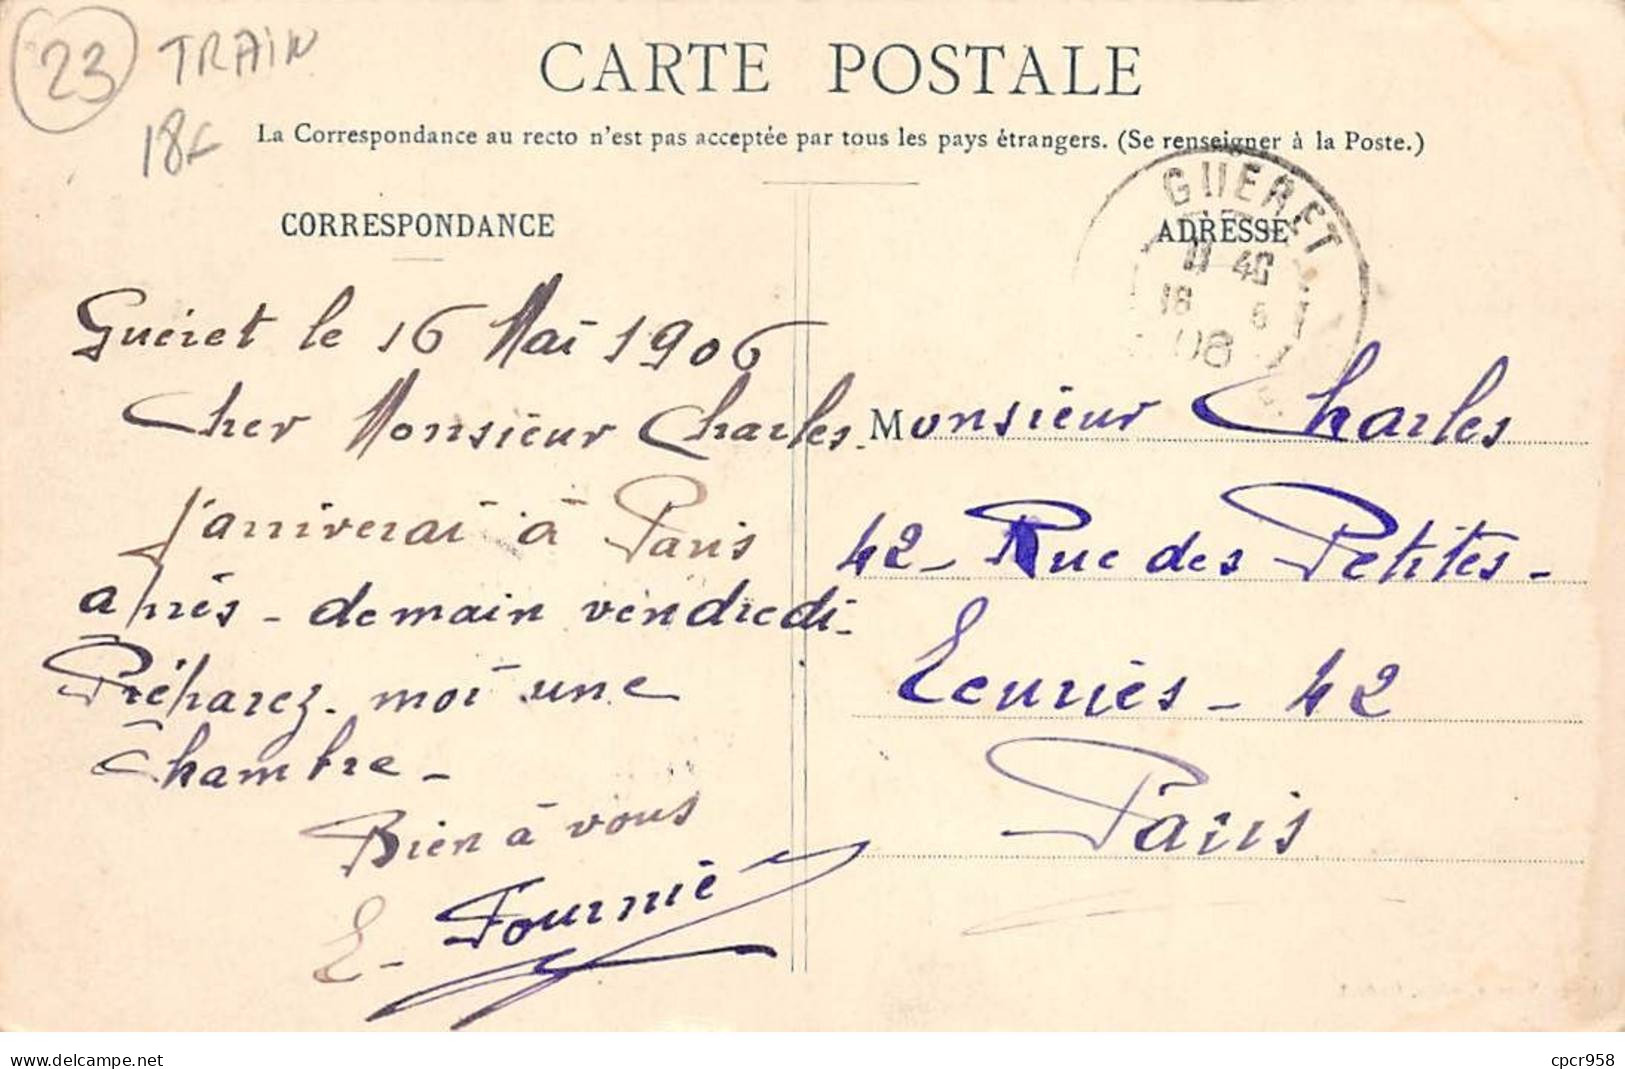 23 TRAIN
18€
CARTE POSTALE
La Correspondance au recto n'est pas acceptée par tous les pays étrangers. (Se renseigner à la Poste.)
CORRESPONDANCE
Guéret le 16 Mai 1906
Cher Monsieur Charles.
J'arriverai à Paris
après-demain vendredi-
Préparez-moi une
Chambre-
Bien à vous
E-Fournié
GUERET
ADRESSE
11 40
16 5
06
Monsieur Charles
42-Rue des Petites-
Ecuries-42
Paris
delcampe.net
cpcr958